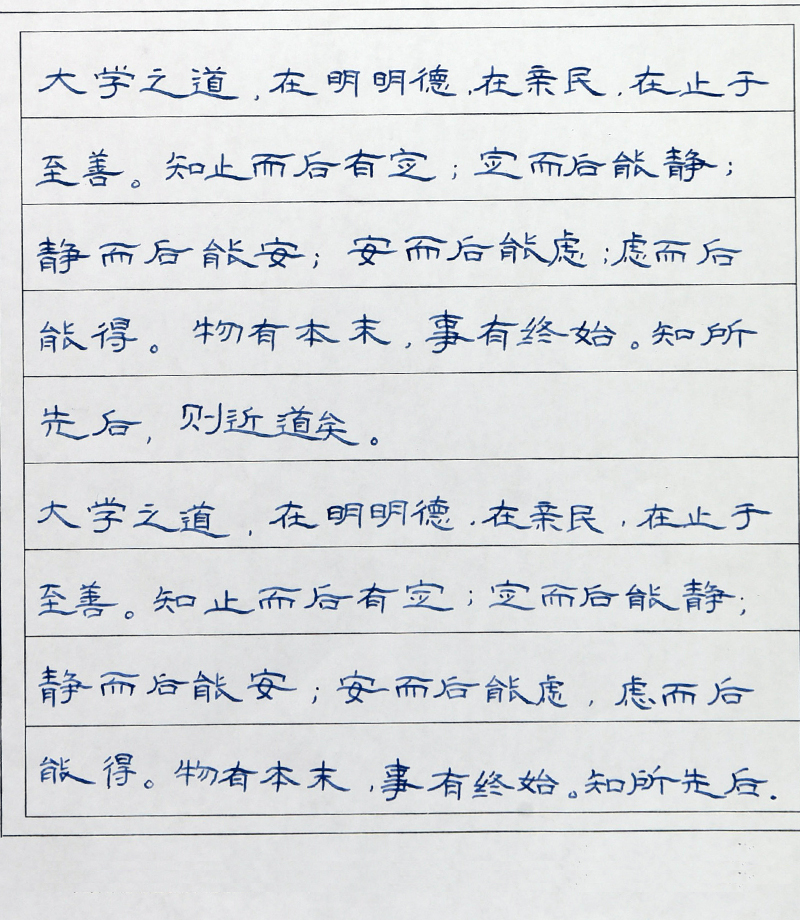 大学之道，在明明德，在亲民，在止于
至善。知止而后有定；定而后能静；
静而后能安；安而后能虑；虑而后
能得。物有本末，事有终始。知所
先后，则近道矣。
大学之道，在明明德，在亲民，在止于
至善。知止而后有定；定而后能静；
静而后能安；安而后能虑，虑而后
能得。物有本末，事有终始。知所先后.